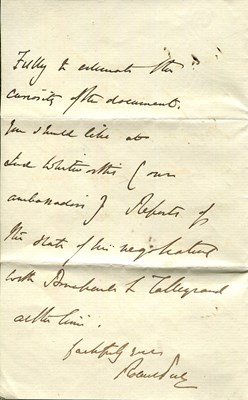 Fully to estimate the
curiosity of the document.
you should look at
Lord Whitworth's (our
ambassador's) Reports of
the state of his negotiations
with Bonaparte & Talleyrand
at the time.
faithfully yours
Robert Peel